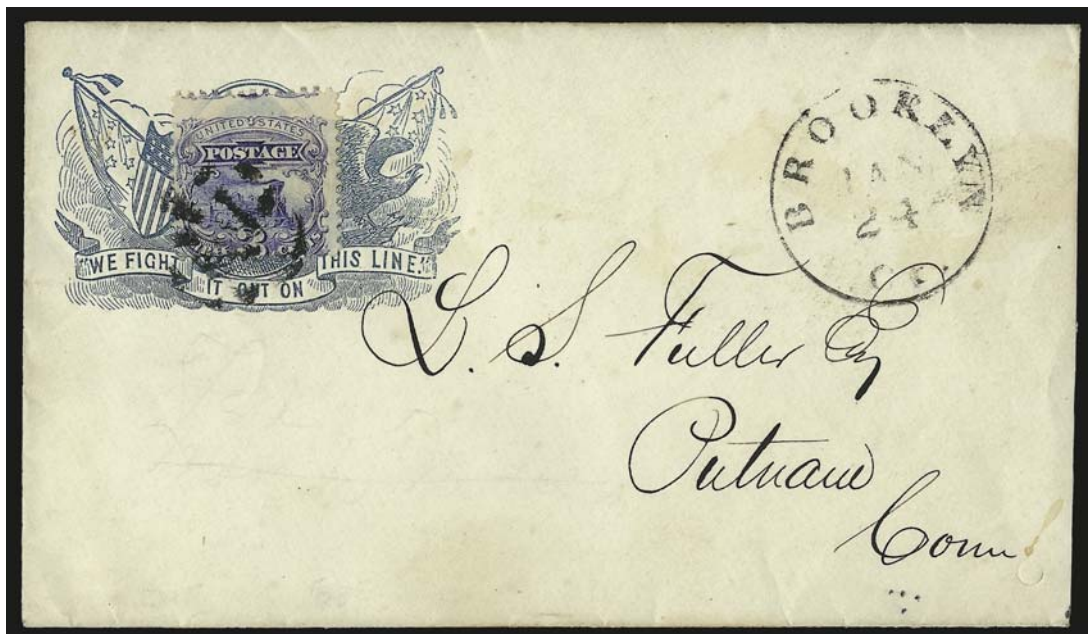 UNITED STATES
POSTAGE
"WE FIGHT
IT OUT ON
THIS LINE."
BROOKLYN
JAN
24
L. S. Fuller Esq
Putnam
Conn